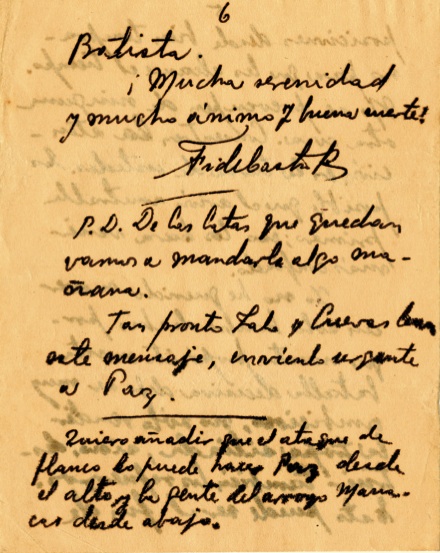 6
Batista.
¡Mucha serenidad
y mucho ánimo y buena suerte!
Fidel Castro R
P.D. De las latas que quedan,
vamos a mandarle algo ma-
ñana.
Tan pronto Lalo y Cuevas lean
este mensaje, envíenlo urgente
a Paz.
Quiero añadir que el ataque de
flanco lo puede hacer Paz desde
el alto, y la gente del arroyo
desde abajo.